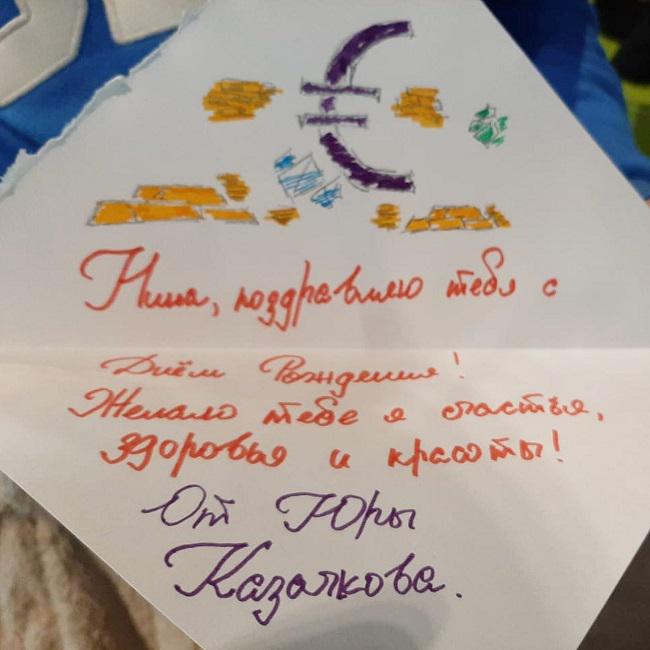 Нина, поздравляю тебя с
Днём Рождения!
Желаю тебе я счастья,
здоровья и красоты!
От Юры
Казачкова.